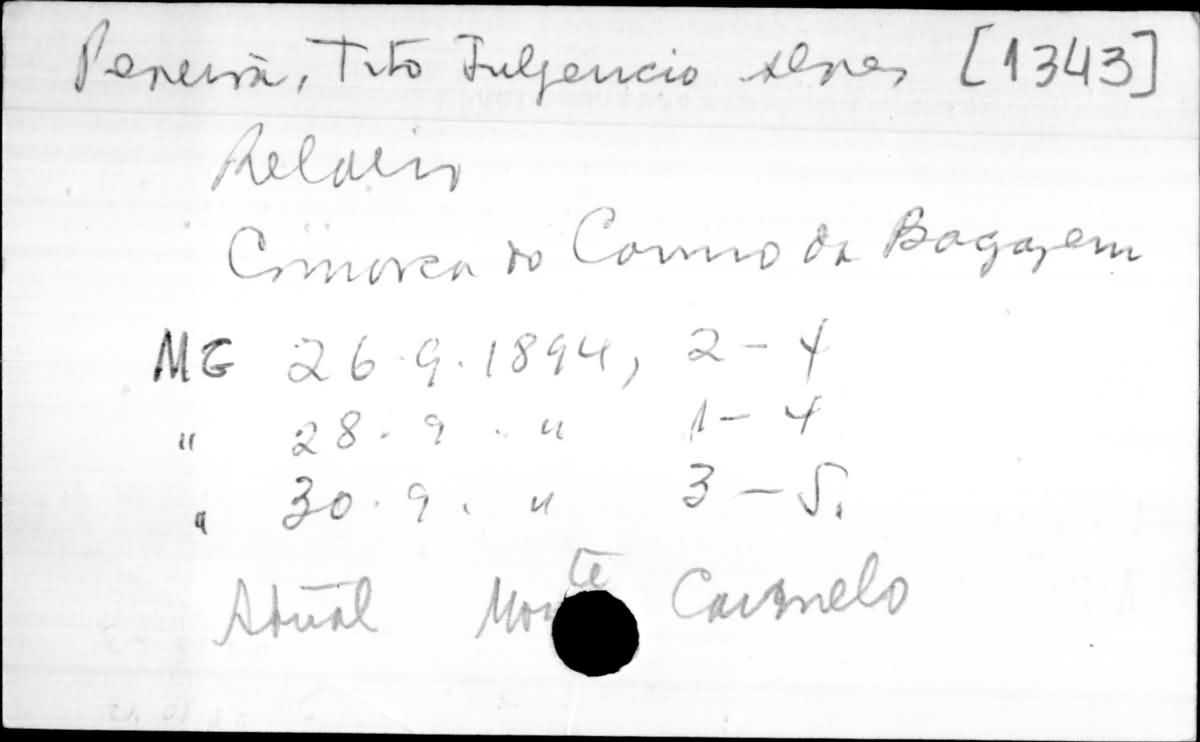 Pereira, Tito Fulgencio Alves [1343]
Comarca do Carmo da Bagagem
MG 26.9.1894, 2-4
" 28.9." 1-4
" 30.9." 3-5.
Atual Monte Carmelo